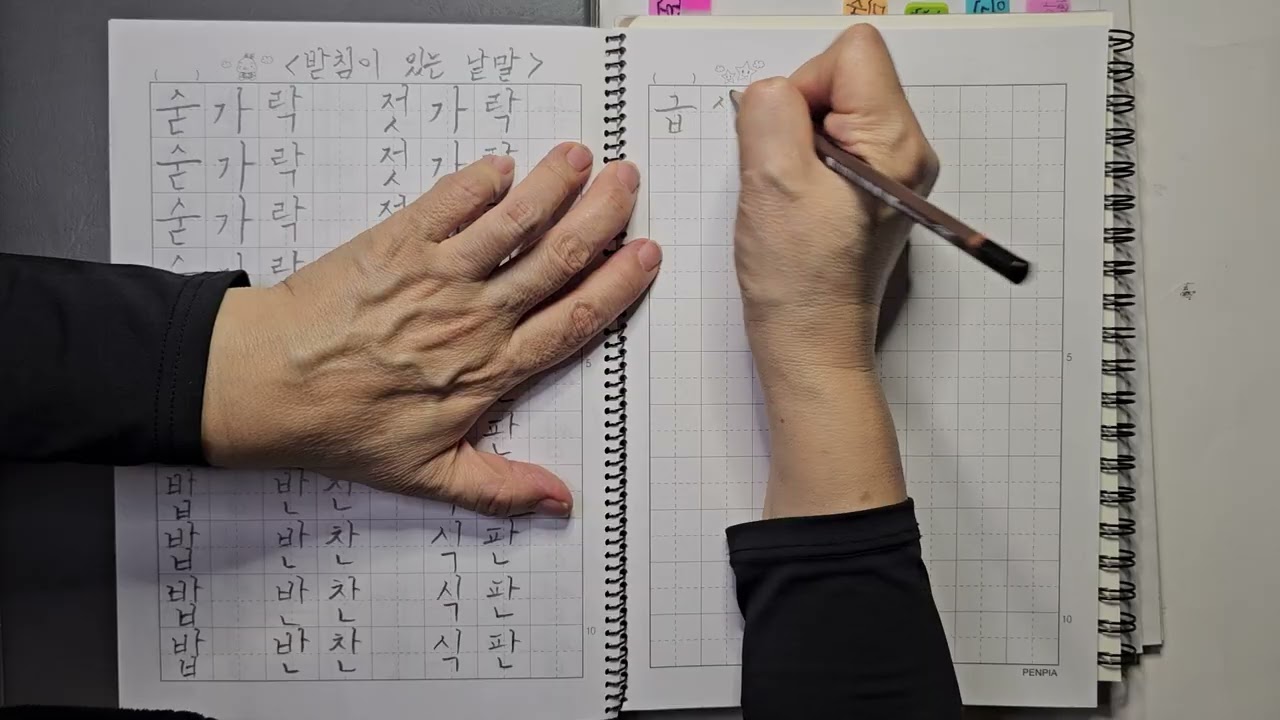 <받침이 있는 낱말>
숟가락 젓가락
숟가락 젓가
숟가락
판
밥 반찬
밥 반찬 식판
밥 반찬 식판
밥 반찬 식판
5
10
급
5
10
PENPIA